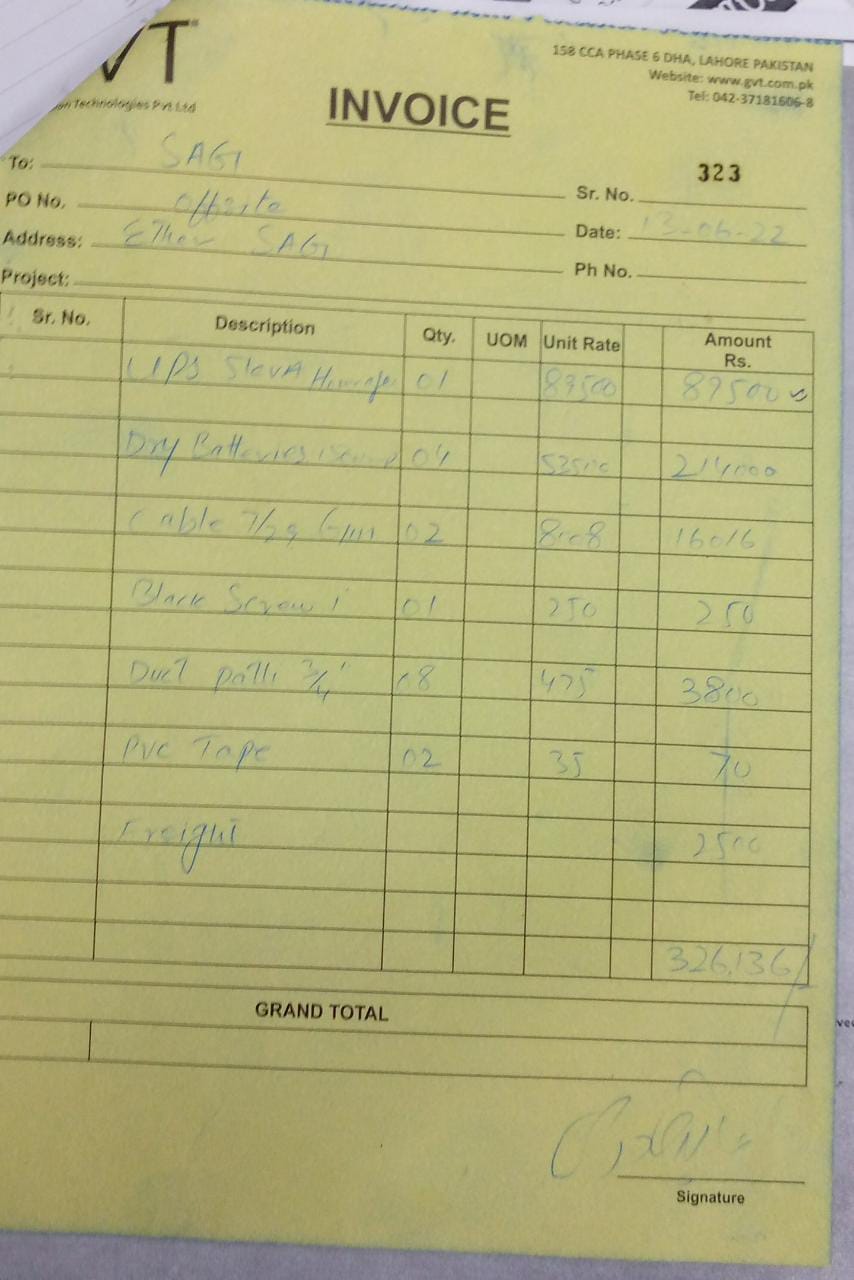 VT
Technologies Pvt Ltd
158 CCA PHASE 6 DHA, LAHORE PAKISTAN
Website: www.gvt.com.pk
Tel: 042-37181606-8
INVOICE
To: SAGI
323
Sr. No.
PO No. Offsite
Date: 13-06-22
Address: Ether SAGI
Ph No.
Project:
Sr. No. Description Qty. UOM Unit Rate Amount Rs.
UPS 5kVA 01 89500 89500
Dry Batteries 04 53500 214000
Cable 7/29 02 8008 16016
Black Screw 1" 01 250 250
Duct patti 3/4" 08 475 3800
PVC Tape 02 35 70
Freight 2500
326,136/
GRAND TOTAL
Signature